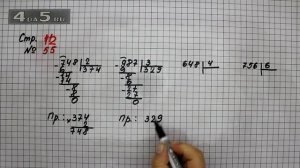 4DA5.RU
Стр. 12
№ 55
748 2 987 3 648 4 756 6
6 374 9 329
14 8
14 6
8 27
8 27
0 0
Пр.: × 374 Пр.: 329
2
748